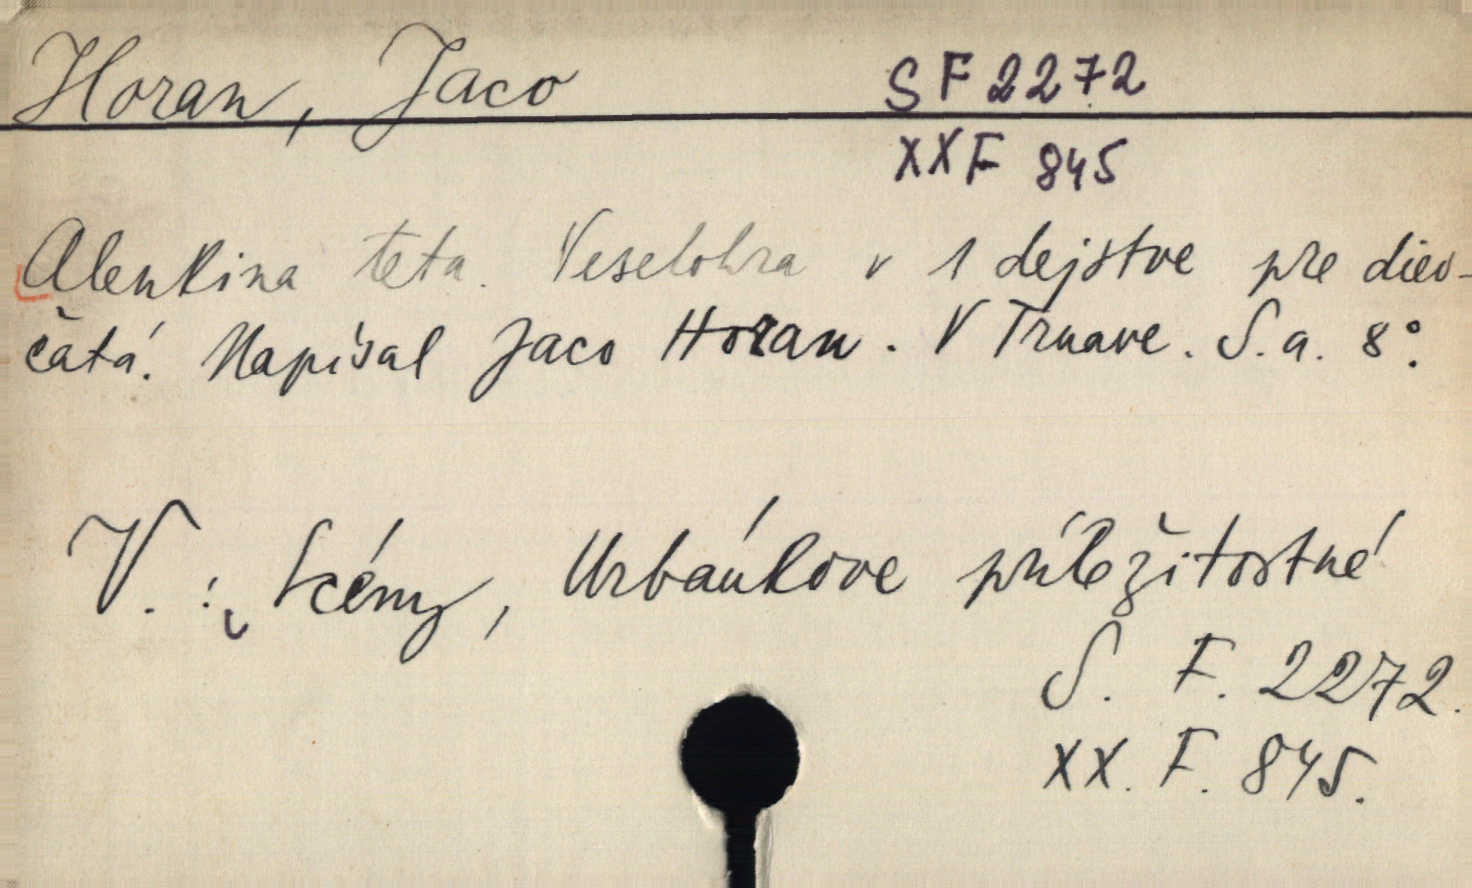 Horan, Jaco SF 2272
XXF 845
Alenkina teta. Veselohra v 1 dejstve pre diev-
čatá. Napísal Jaco Horan. V Trnave. S. a. 8°.
V.: Scény, Urbánkove príležitostné
S. F. 2272.
XX. F. 845.